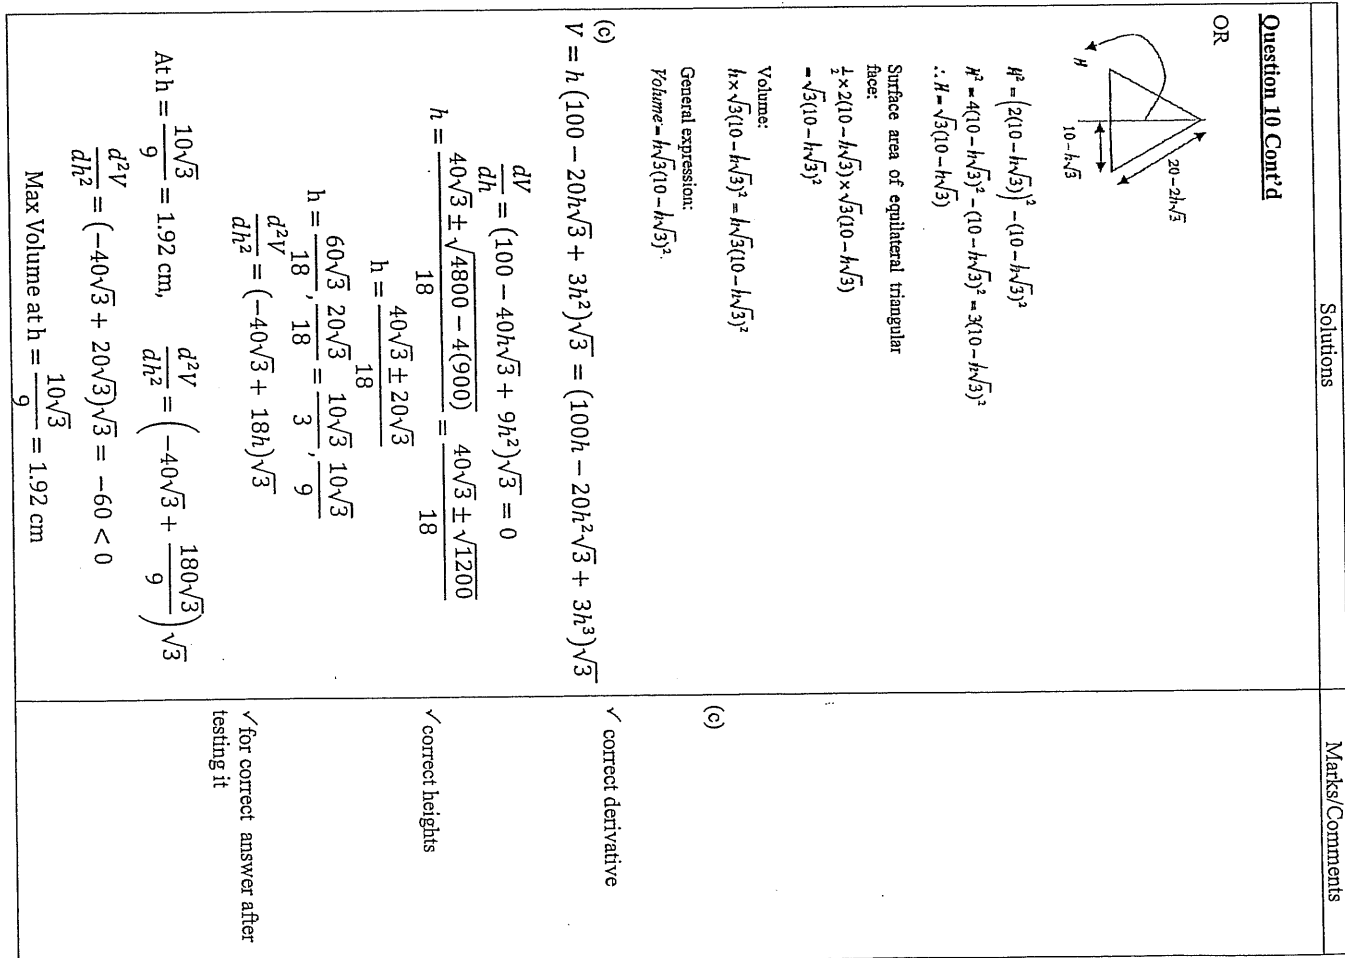 Solutions
Marks/Comments
Question 10 Cont'd
OR
20 − 2h√3
10 − h√3
H
H² = (2(10 − h√3))² − (10 − h√3)²
H² = 4(10 − h√3)² − (10 − h√3)² = 3(10 − h√3)²
∴ H = √3(10 − h√3)
Surface area of equilateral triangular
face:
½ × 2(10 − h√3) × √3(10 − h√3)
= √3(10 − h√3)²
Volume:
h × √3(10 − h√3)² = h√3(10 − h√3)²
General expression:
Volume = h√3(10 − h√3)².
(c)
V = h(100 − 20h√3 + 3h²)√3 = (100h − 20h²√3 + 3h³)√3
dV/dh = (100 − 40h√3 + 9h²)√3 = 0
h = (40√3 ± √(4800 − 4(900)))/18 = (40√3 ± √1200)/18
h = (40√3 ± 20√3)/18
h = 60√3/18, 20√3/18 = 10√3/3, 10√3/9
d²V/dh² = (−40√3 + 18h)√3
At h = 10√3/9 = 1.92 cm, d²V/dh² = (−40√3 + 180√3/9)√3
d²V/dh² = (−40√3 + 20√3)√3 = −60 < 0
Max Volume at h = 10√3/9 = 1.92 cm
(c)
✓ correct derivative
✓ correct heights
✓ for correct answer after
testing it